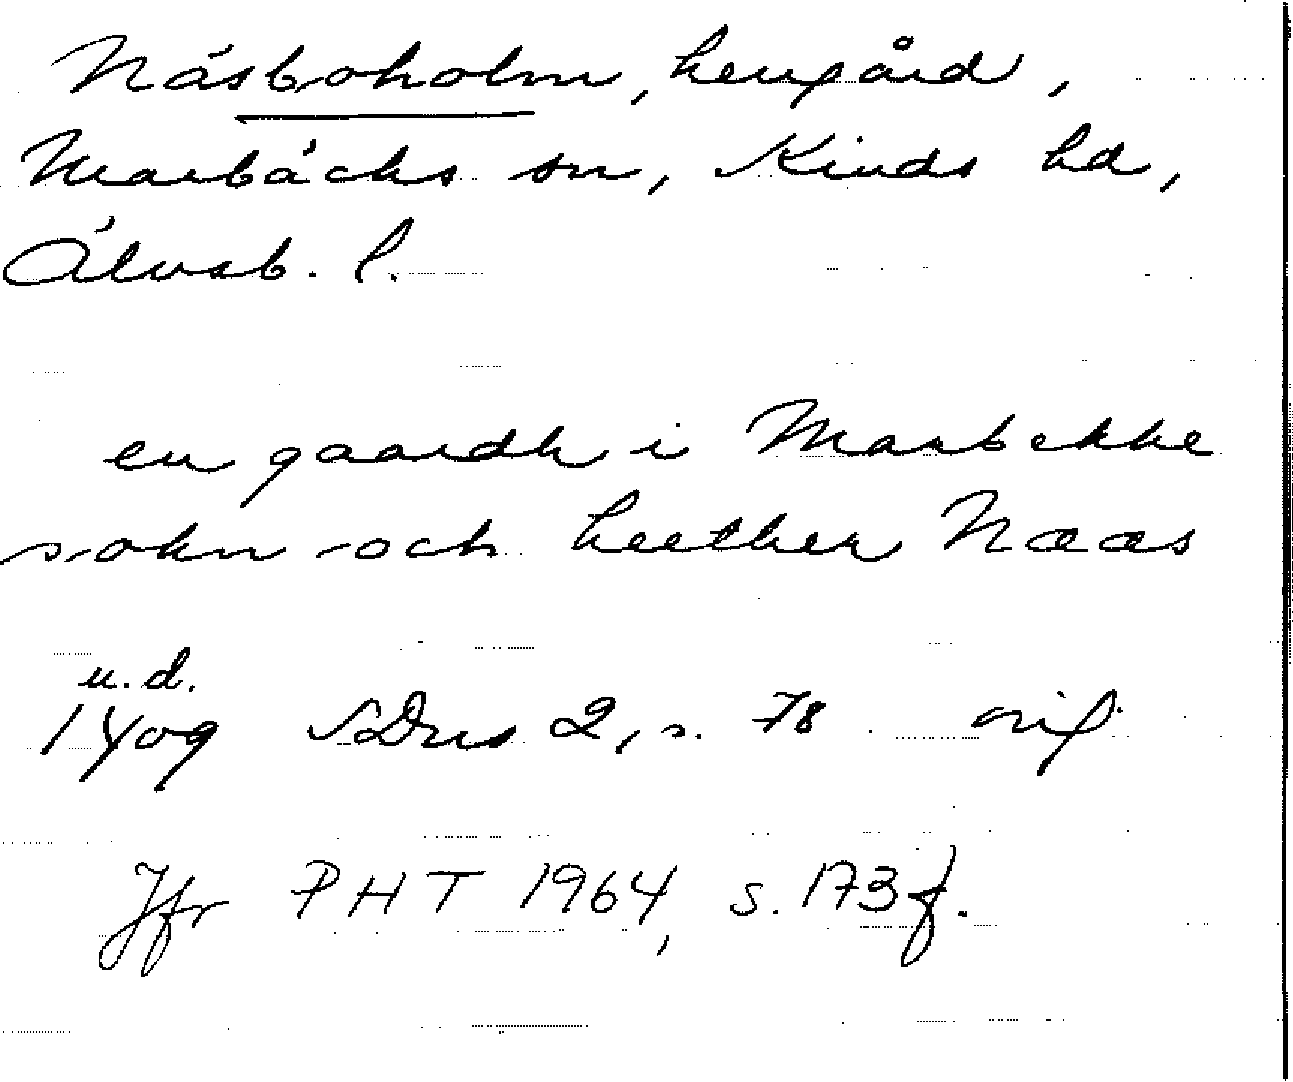 Näsboholm, herrgård,
Marbäcks sn, Kinds hd,
Älvsb. l.
en gaardh i Marbekke
sokn och heether Næs
u.d.
1409 SDns 2, s. 78 orig
Jfr PHT 1964, s. 173 f.